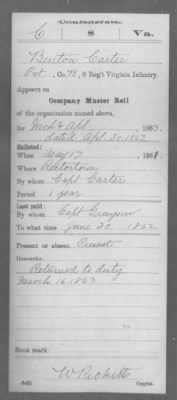 Confederate.
C 8 Va.
Benton Carter
Pvt, Co. , 8 Reg't Virginia Infantry.
Appears on
Company Muster Roll
of the organization named above,
for Mch & Apl, 1863.
dated Apr. 30, 1863
Enlisted:
When May 17, 1861.
Where
By whom Capt Carter
Period 1 year
Last paid:
By whom Capt Grayson
To what time June 30, 1862.
Present or absent Present
Remarks:
Returned to duty
March 16, 1863
Book mark:
W Ricketts
(642) Copyist.